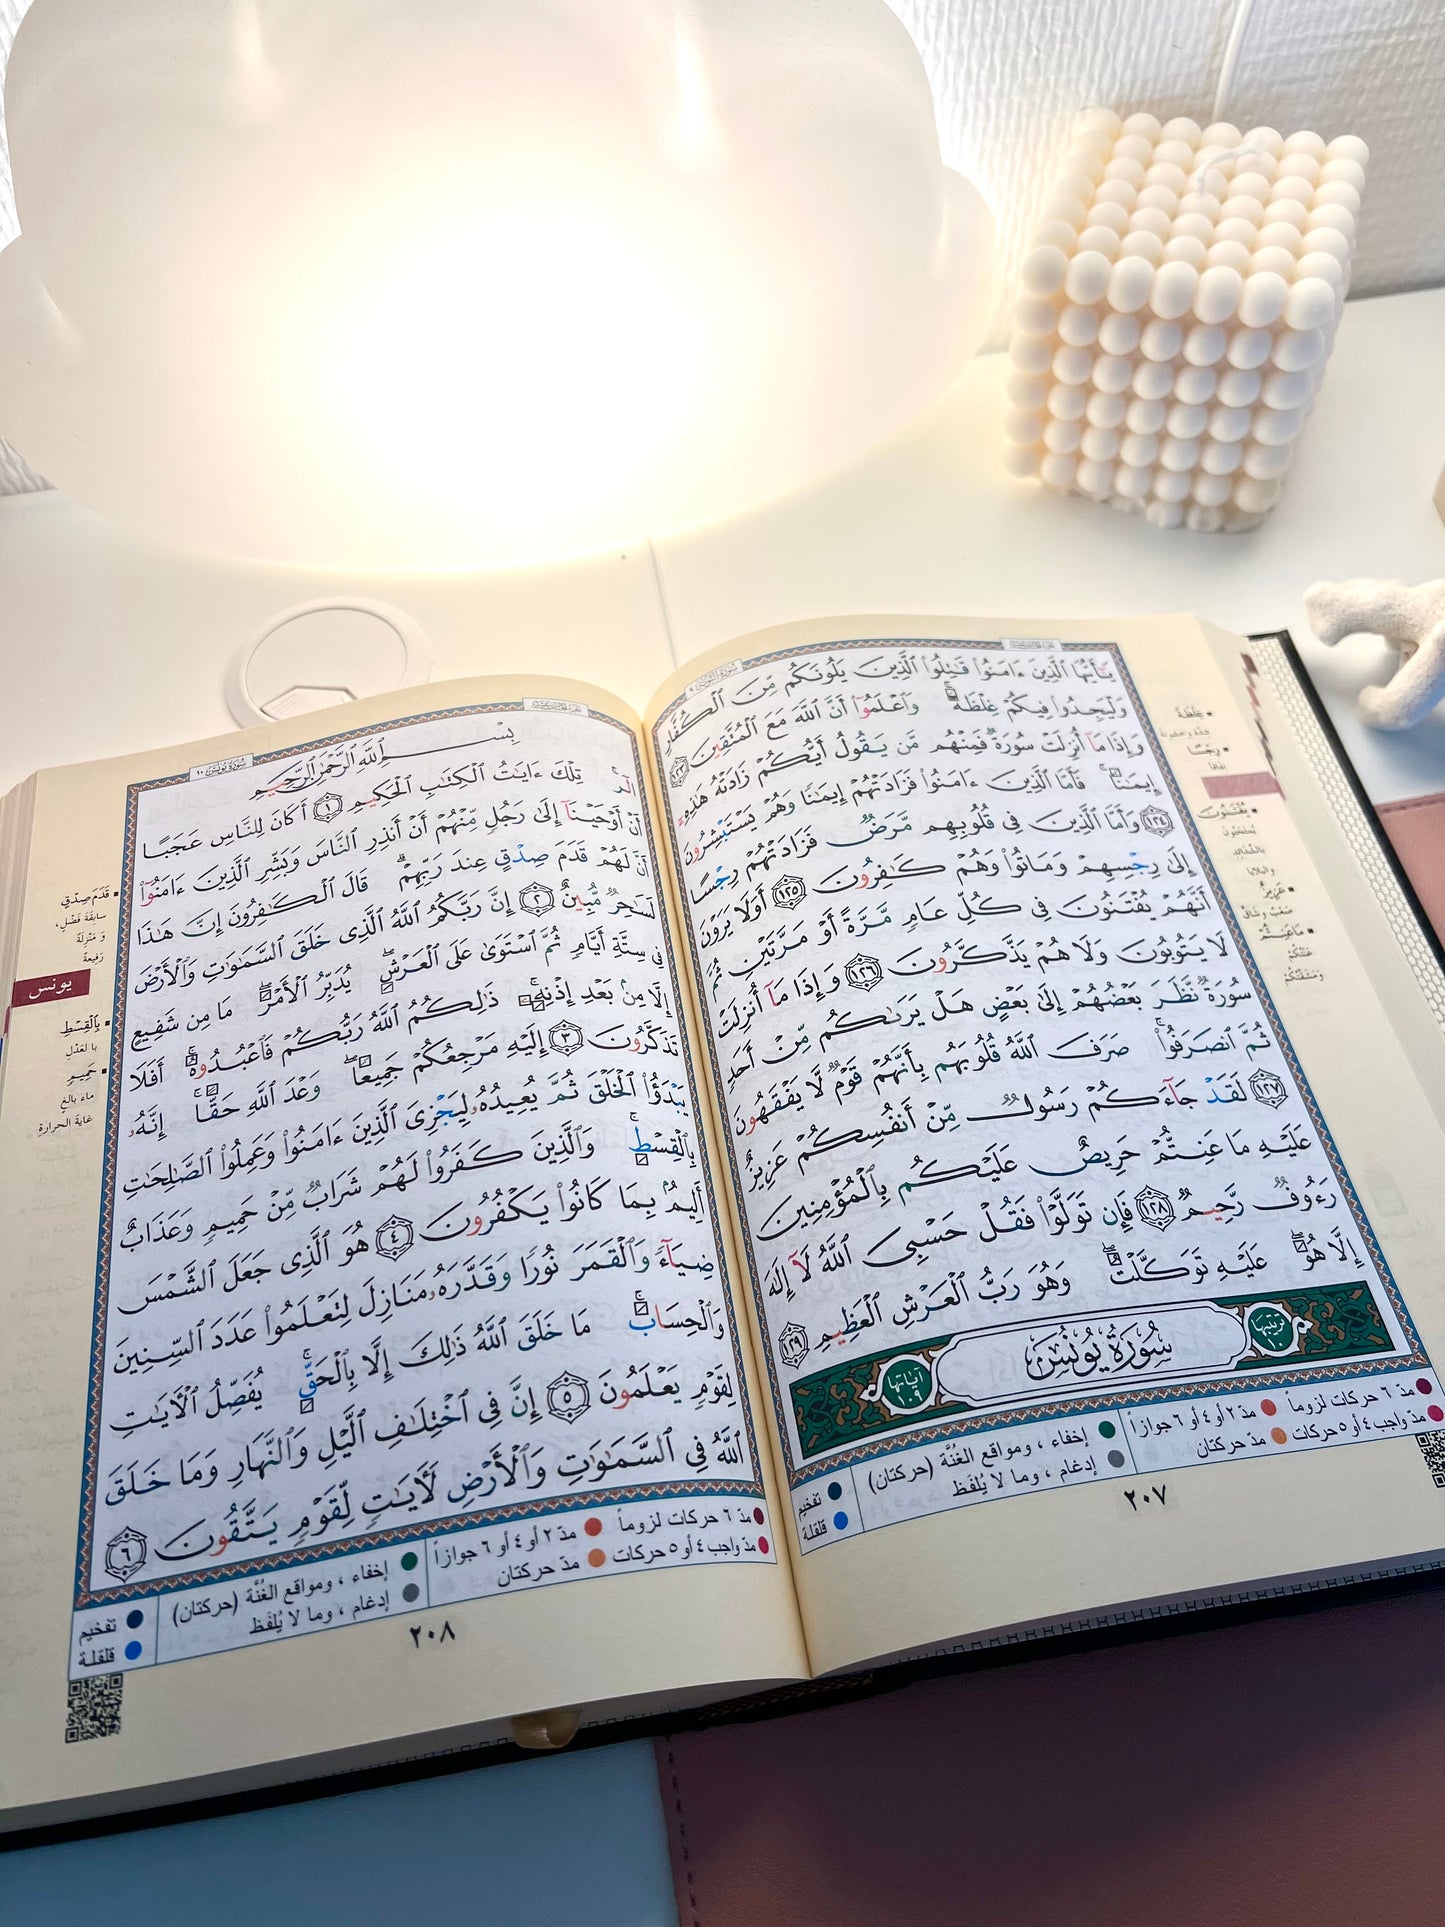 يَٰٓأَيُّهَا ٱلَّذِينَ ءَامَنُوا۟ قَٰتِلُوا۟ ٱلَّذِينَ يَلُونَكُم مِّنَ ٱلْكُفَّارِ
وَلْيَجِدُوا۟ فِيكُمْ غِلْظَةً ۚ وَٱعْلَمُوٓا۟ أَنَّ ٱللَّهَ مَعَ ٱلْمُتَّقِينَ ١٢٣
وَإِذَا مَآ أُنزِلَتْ سُورَةٌ فَمِنْهُم مَّن يَقُولُ أَيُّكُمْ زَادَتْهُ هَٰذِهِۦٓ
إِيمَٰنًا ۚ فَأَمَّا ٱلَّذِينَ ءَامَنُوا۟ فَزَادَتْهُمْ إِيمَٰنًا وَهُمْ يَسْتَبْشِرُونَ
١٢٤ وَأَمَّا ٱلَّذِينَ فِى قُلُوبِهِم مَّرَضٌ فَزَادَتْهُمْ رِجْسًا
إِلَىٰ رِجْسِهِمْ وَمَاتُوا۟ وَهُمْ كَٰفِرُونَ ١٢٥ أَوَلَا يَرَوْنَ
أَنَّهُمْ يُفْتَنُونَ فِى كُلِّ عَامٍ مَّرَّةً أَوْ مَرَّتَيْنِ ثُمَّ
لَا يَتُوبُونَ وَلَا هُمْ يَذَّكَّرُونَ ١٢٦ وَإِذَا مَآ أُنزِلَتْ
سُورَةٌ نَّظَرَ بَعْضُهُمْ إِلَىٰ بَعْضٍ هَلْ يَرَىٰكُم مِّنْ أَحَدٍ
ثُمَّ ٱنصَرَفُوا۟ ۚ صَرَفَ ٱللَّهُ قُلُوبَهُم بِأَنَّهُمْ قَوْمٌ لَّا يَفْقَهُونَ
١٢٧ لَقَدْ جَآءَكُمْ رَسُولٌ مِّنْ أَنفُسِكُمْ عَزِيزٌ
عَلَيْهِ مَا عَنِتُّمْ حَرِيصٌ عَلَيْكُم بِٱلْمُؤْمِنِينَ
رَءُوفٌ رَّحِيمٌ ١٢٨ فَإِن تَوَلَّوْا۟ فَقُلْ حَسْبِىَ ٱللَّهُ لَآ إِلَٰهَ
إِلَّا هُوَ ۖ عَلَيْهِ تَوَكَّلْتُ ۖ وَهُوَ رَبُّ ٱلْعَرْشِ ٱلْعَظِيمِ ١٢٩
ترتيبها ١٠ سُورَةُ يُونُسَ آياتها ١٠٩
مدّ ٦ حركات لزوماً مدّ ٢ أو ٤ أو ٦ جوازاً إخفاء ، ومواقع الغُنَّة (حركتان) تفخيم
مدّ واجب ٤ أو ٥ حركات مدّ حركتان إدغام ، وما لا يُلفَظ قلقلة
٢٠٧
غِلْظَةً
رِجْسًا
نفاقاً
يُفْتَنُونَ
عَزِيزٌ
مَاعَنِتُّمْ
سُورَةُ يُونُسَ ١٠
بِسْمِ ٱللَّهِ ٱلرَّحْمَٰنِ ٱلرَّحِيمِ
الٓر ۚ تِلْكَ ءَايَٰتُ ٱلْكِتَٰبِ ٱلْحَكِيمِ ١ أَكَانَ لِلنَّاسِ عَجَبًا
أَنْ أَوْحَيْنَآ إِلَىٰ رَجُلٍ مِّنْهُمْ أَنْ أَنذِرِ ٱلنَّاسَ وَبَشِّرِ ٱلَّذِينَ ءَامَنُوٓا۟
أَنَّ لَهُمْ قَدَمَ صِدْقٍ عِندَ رَبِّهِمْ ۗ قَالَ ٱلْكَٰفِرُونَ إِنَّ هَٰذَا
لَسَٰحِرٌ مُّبِينٌ ٢ إِنَّ رَبَّكُمُ ٱللَّهُ ٱلَّذِى خَلَقَ ٱلسَّمَٰوَٰتِ وَٱلْأَرْضَ
فِى سِتَّةِ أَيَّامٍ ثُمَّ ٱسْتَوَىٰ عَلَى ٱلْعَرْشِ ۖ يُدَبِّرُ ٱلْأَمْرَ ۖ مَا مِن شَفِيعٍ
إِلَّا مِنۢ بَعْدِ إِذْنِهِۦ ۚ ذَٰلِكُمُ ٱللَّهُ رَبُّكُمْ فَٱعْبُدُوهُ ۚ أَفَلَا
تَذَكَّرُونَ ٣ إِلَيْهِ مَرْجِعُكُمْ جَمِيعًا ۖ وَعْدَ ٱللَّهِ حَقًّا ۚ إِنَّهُۥ
يَبْدَؤُا۟ ٱلْخَلْقَ ثُمَّ يُعِيدُهُۥ لِيَجْزِىَ ٱلَّذِينَ ءَامَنُوا۟ وَعَمِلُوا۟ ٱلصَّٰلِحَٰتِ
بِٱلْقِسْطِ ۚ وَٱلَّذِينَ كَفَرُوا۟ لَهُمْ شَرَابٌ مِّنْ حَمِيمٍ وَعَذَابٌ
أَلِيمٌۢ بِمَا كَانُوا۟ يَكْفُرُونَ ٤ هُوَ ٱلَّذِى جَعَلَ ٱلشَّمْسَ
ضِيَآءً وَٱلْقَمَرَ نُورًا وَقَدَّرَهُۥ مَنَازِلَ لِتَعْلَمُوا۟ عَدَدَ ٱلسِّنِينَ
وَٱلْحِسَابَ ۚ مَا خَلَقَ ٱللَّهُ ذَٰلِكَ إِلَّا بِٱلْحَقِّ ۚ يُفَصِّلُ ٱلْءَايَٰتِ
لِقَوْمٍ يَعْلَمُونَ ٥ إِنَّ فِى ٱخْتِلَٰفِ ٱلَّيْلِ وَٱلنَّهَارِ وَمَا خَلَقَ
ٱللَّهُ فِى ٱلسَّمَٰوَٰتِ وَٱلْأَرْضِ لَءَايَٰتٍ لِّقَوْمٍ يَتَّقُونَ ٦
مدّ ٦ حركات لزوماً مدّ ٢ أو ٤ أو ٦ جوازاً إخفاء ، ومواقع الغُنَّة (حركتان) تفخيم
مدّ واجب ٤ أو ٥ حركات مدّ حركتان إدغام ، وما لا يُلفَظ قلقلة
٢٠٨
قَدَمَ صِدْقٍ
سابقة فضْلٍ ،
وَ مَنْزِلَة
رفيعة
يونس
بِٱلْقِسْطِ
بالعَدْلِ
حَمِيمٍ
ماء بالغ
غاية الحرارة